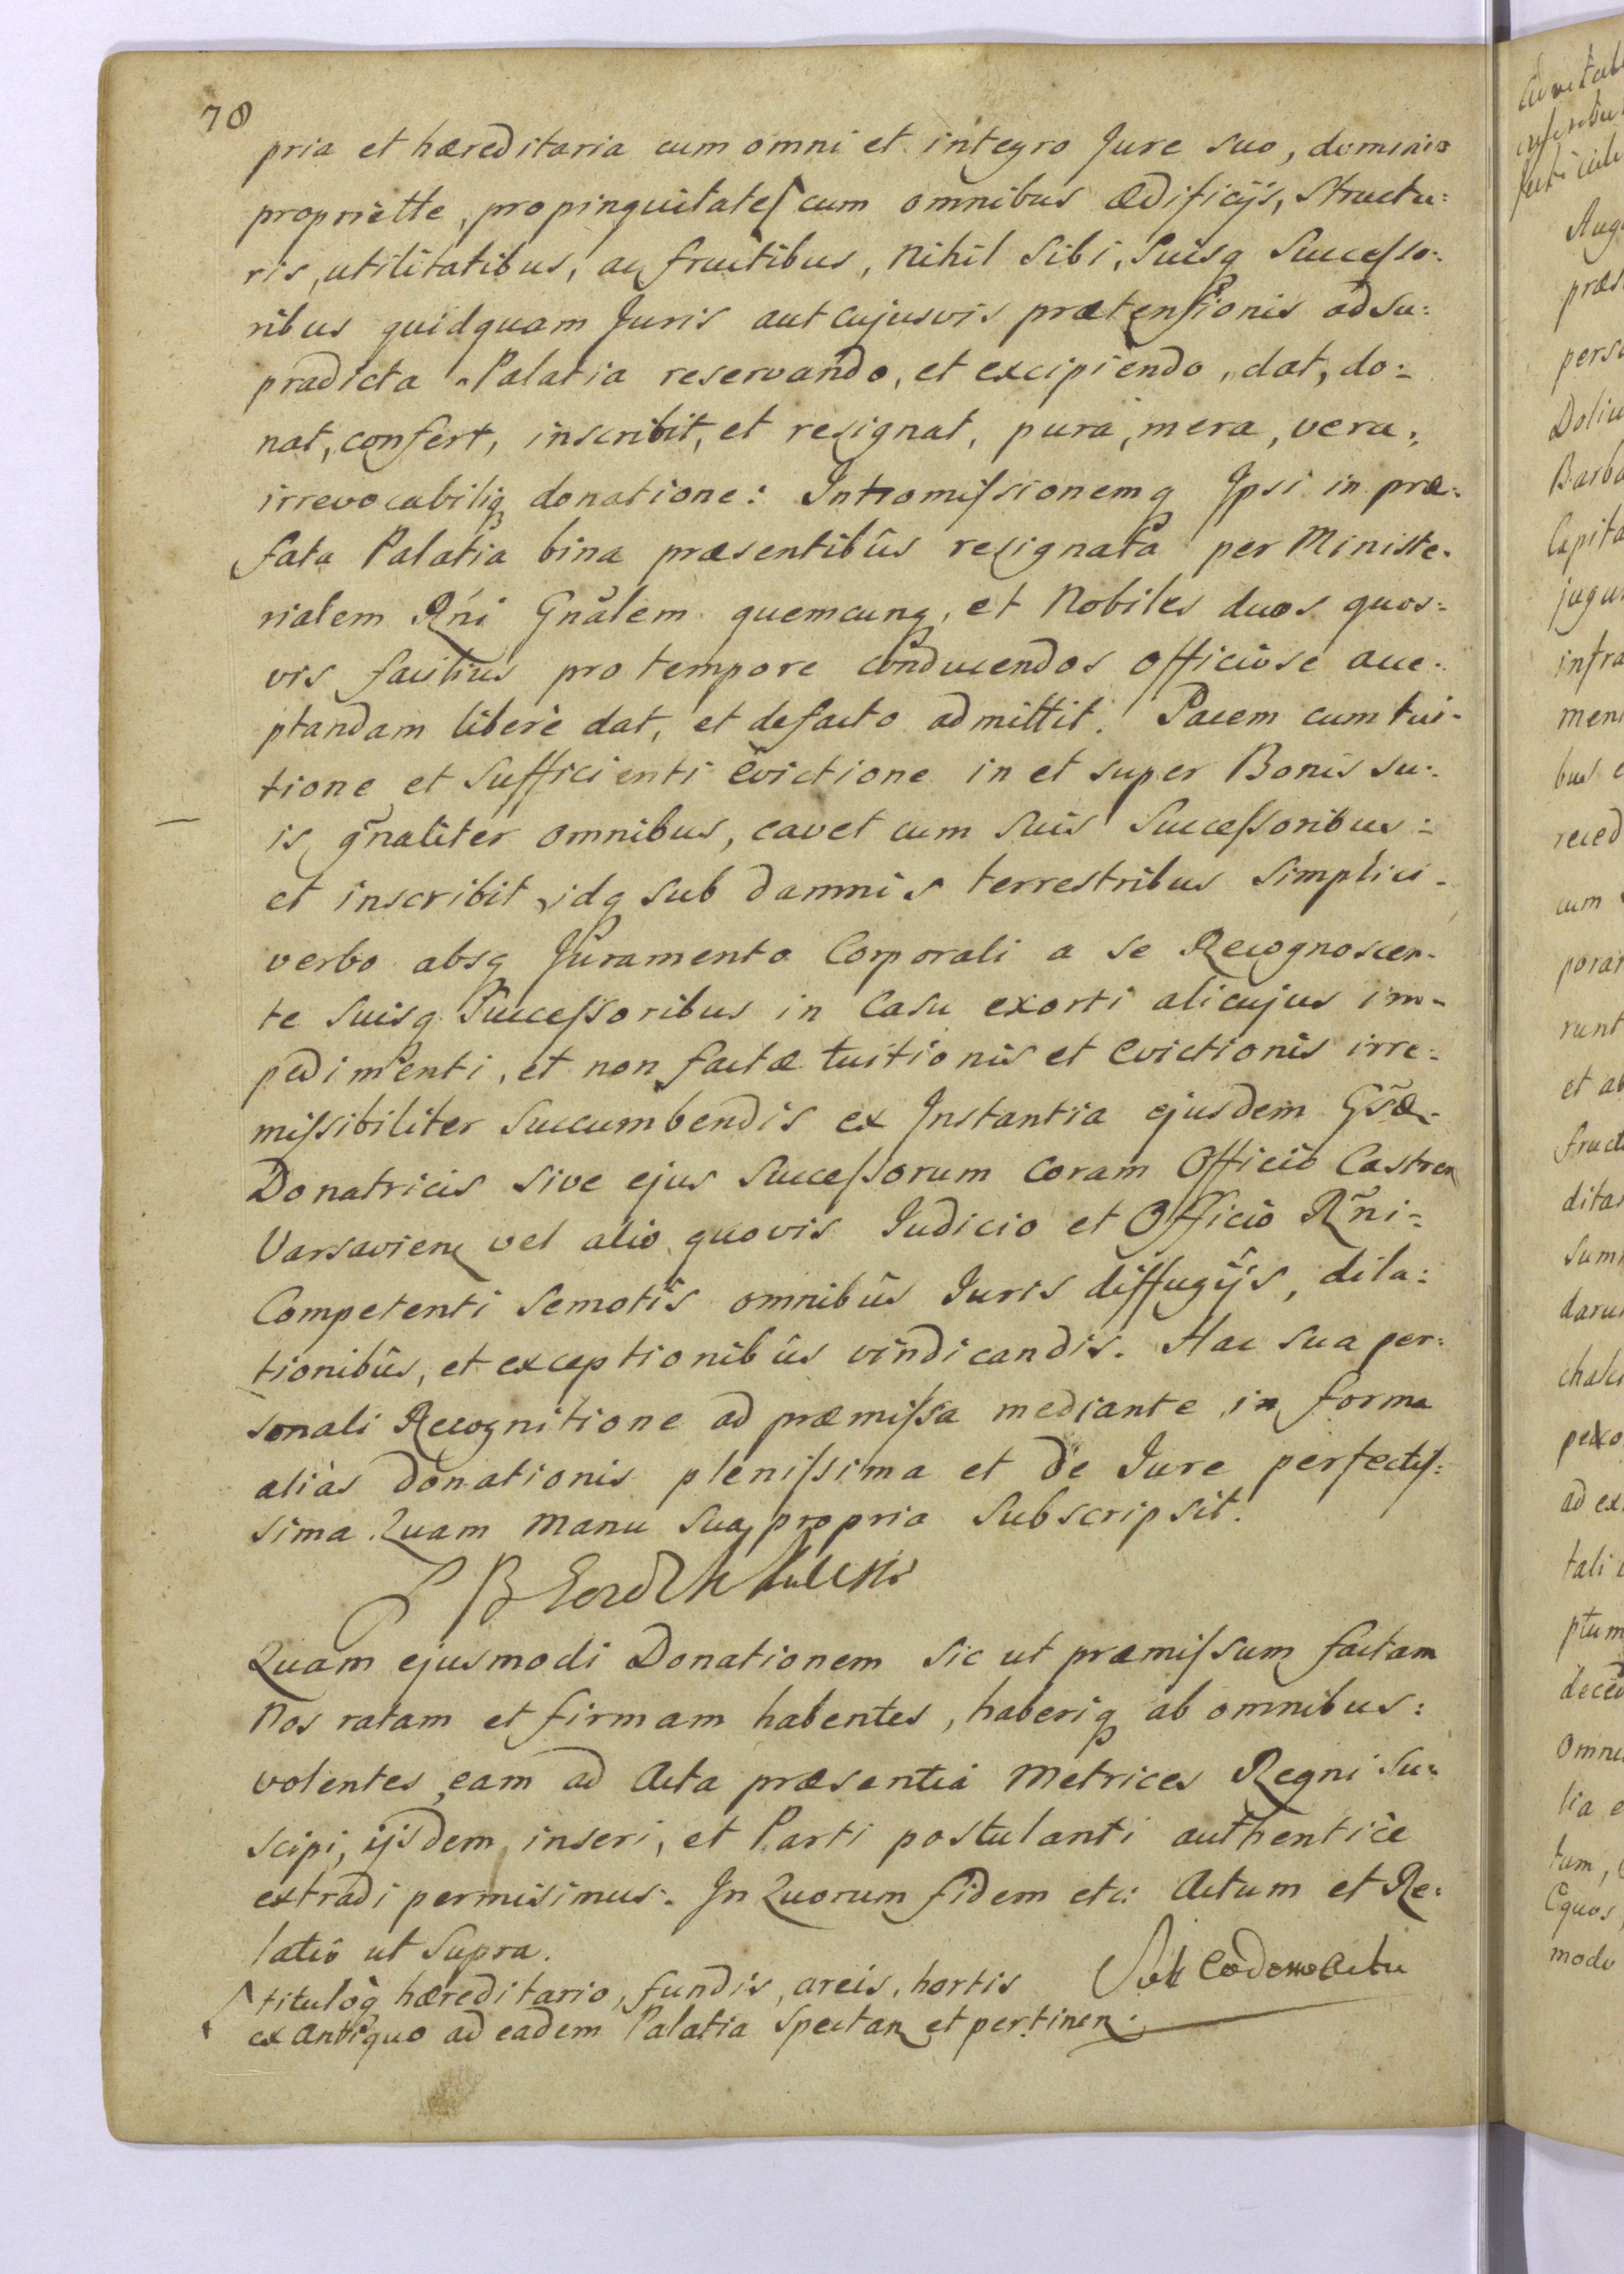 78
pria et hæreditaria cum omni et integro Jure suo, dominio
propriette, propinquitate ſ cum omnibus ædificijs, structu:
ris, utilitatibus, ac fructibus, nihil sibi, suisq Succeſso:
ribus quidquam Juris aut cujusvis prætensionis ad su:
pradicta Palatia reservando, et excipiendo, dat, do:
nat, confert, inscribit, et resignat, pura, mera, vera,
irrevocabiliq donatione: Intromiſsionemq Ipsi in præ:
fata Palatia bina præsentibûs resignata per Ministe-
rialem Rñi Gñalem quemcunq, et Nobiles duos quos-
vis facilius pro tempore conducendos officiose acce-
ptandam liberè dat, et defacto admittit. Pacem cum tui-
tione et sufficienti evictione in et super Bonis su:
is gñaliter omnibus, cavet cum suis Succeſsoribus:
et inscribit, idq sub damnis terrestribus simplici-
verbo absq Juramento Corporali a se Recognoscen-
te suisq Succeſsoribus in Casu exorti alicujus im-
pedimenti, et non factæ tuitionis et evictionis irre:
miſsibiliter succumbendis ex Instantia ejusdem Gsæ-
Donatricis sive ejus Succeſsorum coram Officiô Castren
Varsavien vel alio quovis Judicio et Officiô Rñi-
Competenti semotîs omnibûs Juris diffugijs, dila:
tionibûs, et exceptionibûs vindicandis. Hac sua per:
sonali Recognitione ad præmiſsa mediante in forma
aliàs donationis pleniſsima et de Jure perfectiſ:
sima. Quam manu sua propria subscripsit.
Quam ejusmodi Donationem sic ut præmiſsum factam
Nos ratam et firmam habentes, haberiq ab omnibus:
volentes, eam ad Acta præsentia Metrices Regni su:
scipi, ijsdem inseri, et Parti postulanti authenticè
extradi permisimus. In Quorum fidem etc: Actum et Re:
latio ut supra.
ſ tituloq hæreditario, fundis, areis, hortis
Sub Eodem Actu
ex antiquo ad eadem Palatia spectan et pertinen: